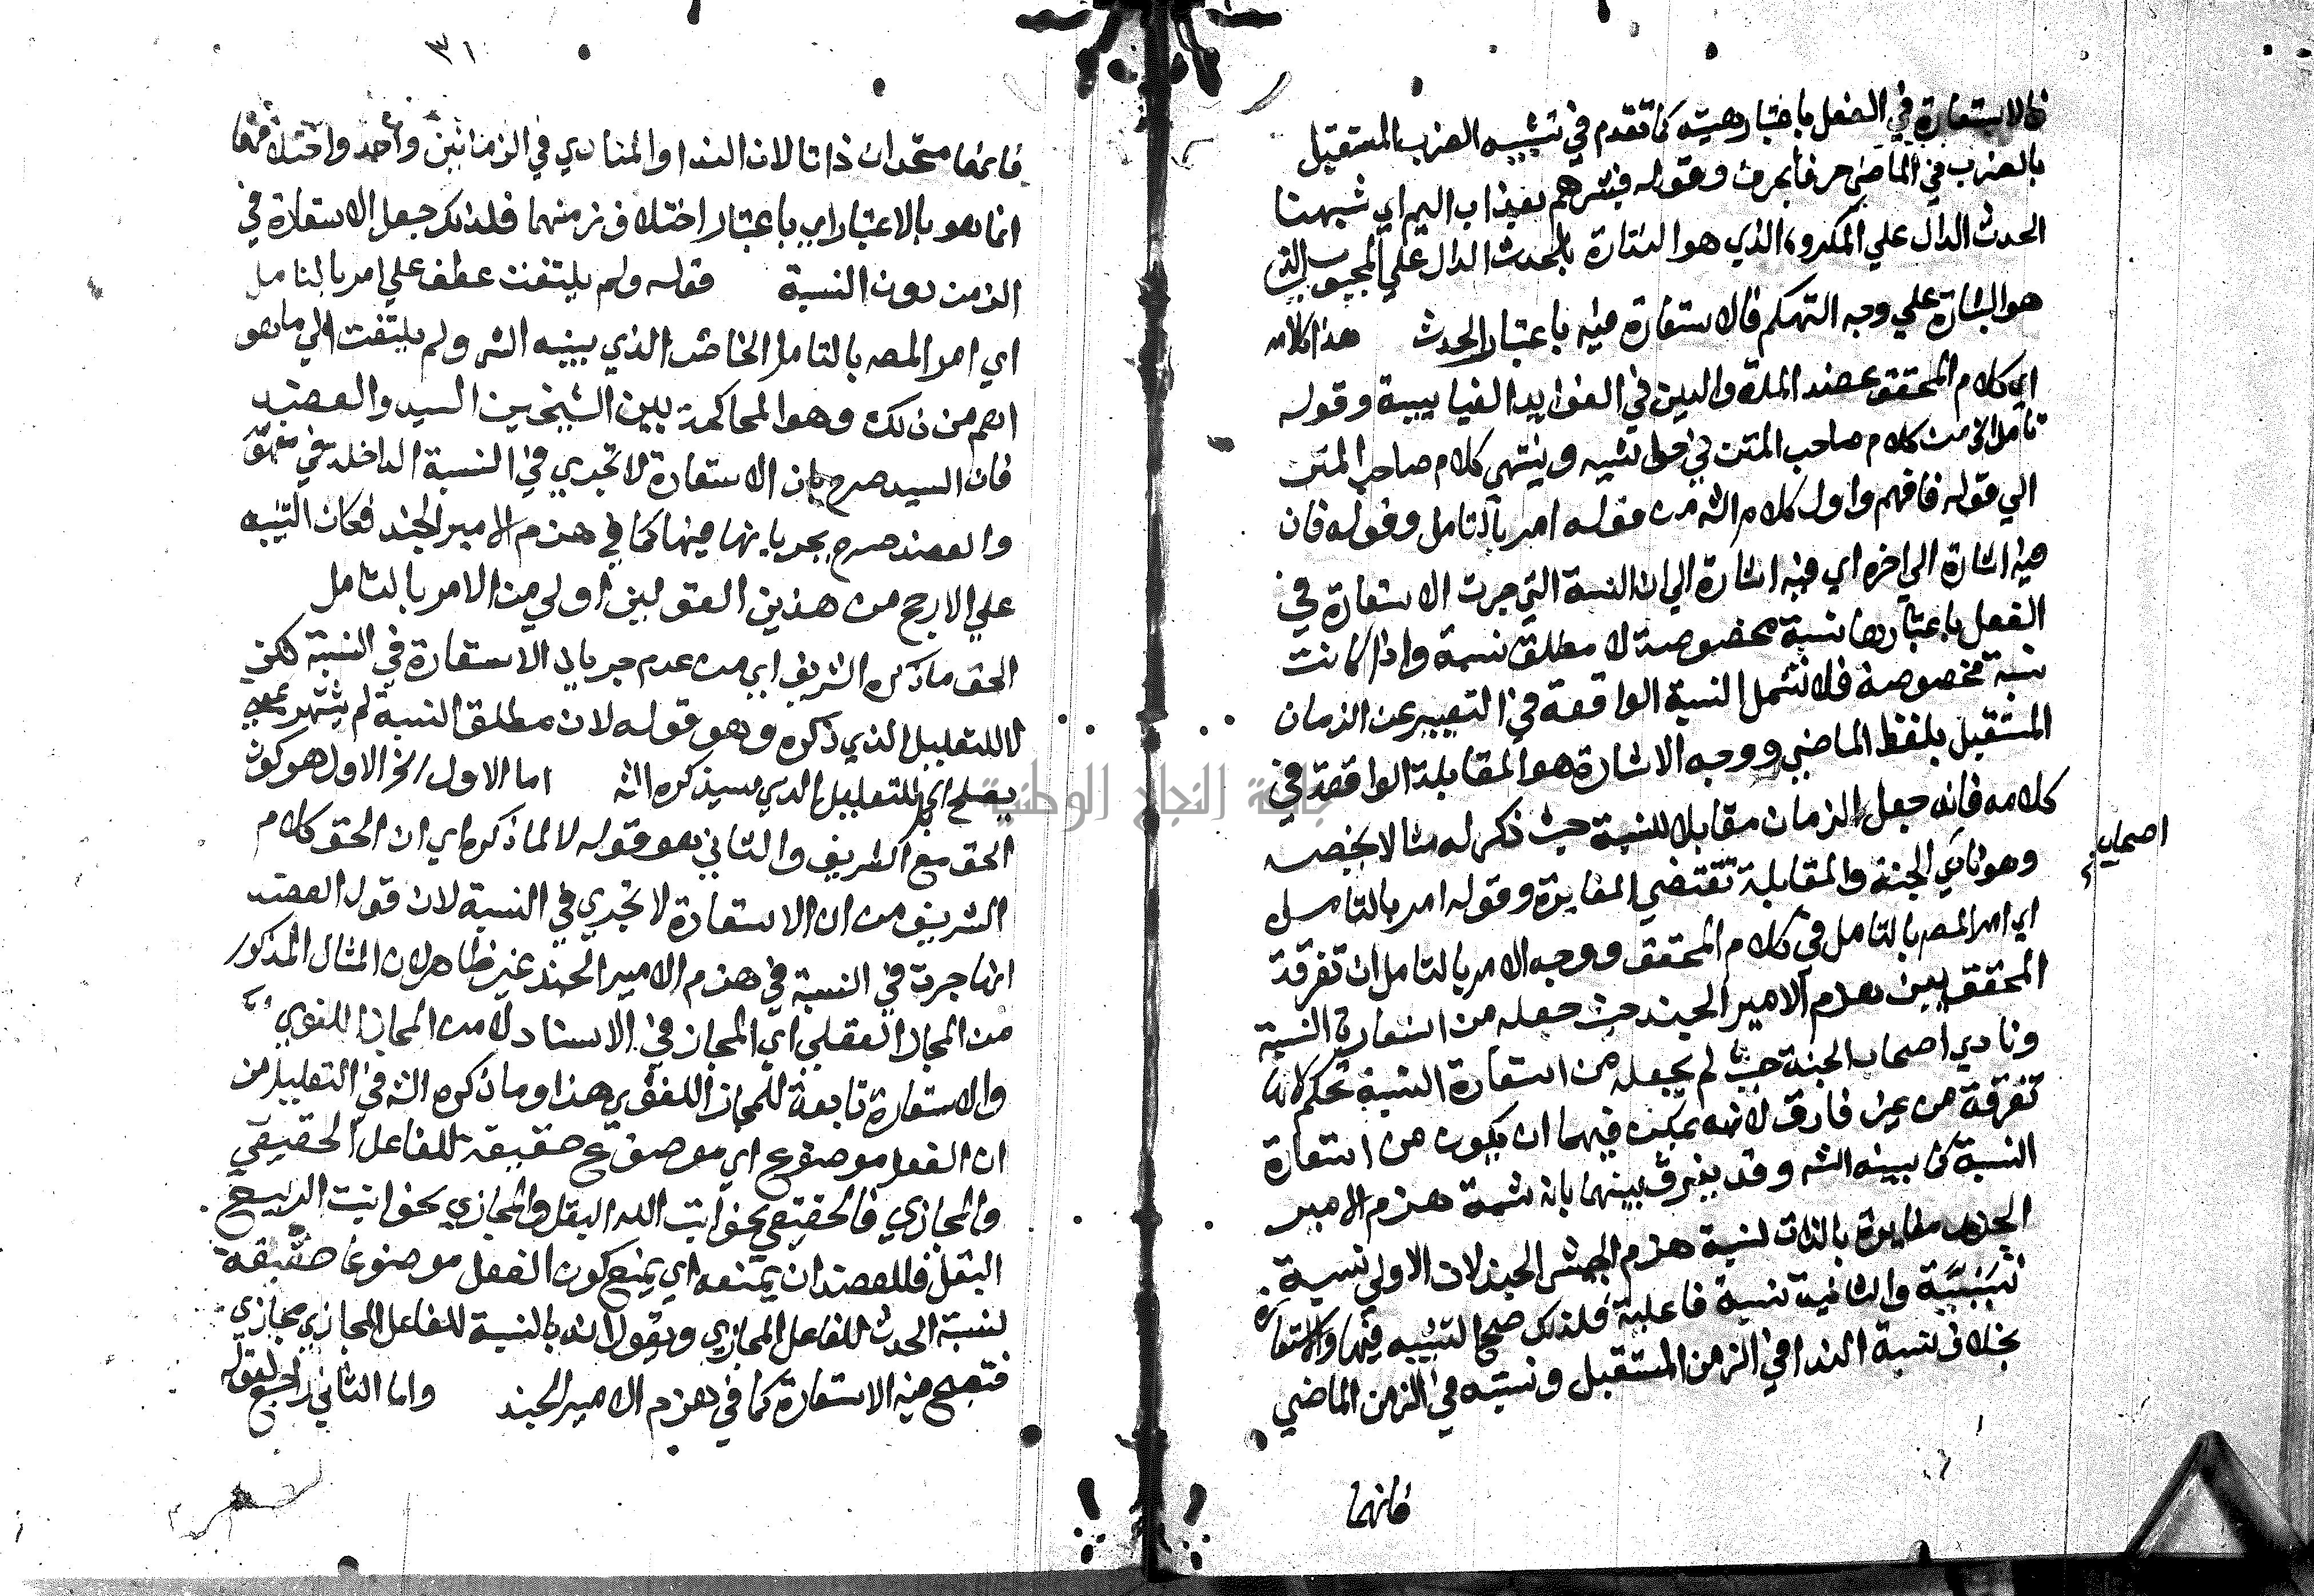 فالاستعارة في الفعل باعتبار هيئته كما تقدم في تشبيه الضرب المستقبل
بالضرب في الماضي حرفا بحرف وقوله فبشرهم بعذاب اليم اي شبهنا
الحدث الدال علي المكروه الذي هو النذارة بالحدث الدال علي المحبوب الذي
هو البشارة علي وجه التهكم فالاستعارة فيه باعتبار الحدث هذا كلامه
اي كلام المحقق عضد الملة والدين في الفوايد الغياثية وقوله
تأمل الخ من كلام صاحب المتن في حواشيه وينتهي كلام صاحب المتن
الي قوله فافهم واول كلام الشه من قوله امر بالتامل وقوله فان
فيه اشارة الي اخره اي فيه اشارة الي ان النسبة التي جرت الاستعارة في
الفعل باعتبارها نسبة مخصوصة لا مطلق نسبة واذا كانت
نسبة مخصوصة فلا تشمل النسبة الواقعة في التعبير عن الزمان
المستقبل بلفظ الماضي ووجه الاشارة هو المقابلة الواقعة في
كلامه فانه جعل الزمان مقابلا للنسبة حيث ذكر له مثالا يخصه
وهو نادي الجنة والمقابلة تقتضي المغايرة وقوله امر بالتامل
اصحاب
اي امر المصه بالتامل في كلام المحقق ووجه الامر بالتامل ان تفرقة
المحقق بين هزم الامير الجند حيث جعله من استعارة النسبة
ونادي اصحاب الجنة حيث لم يجعله من استعارة النسبة تحكم لانها
تفرقة من غير فارق لانه يمكن فيهما ان يكون من استعارة
النسبة كما بينه الشه وقد يفرق بينهما بان نسبة هزم الامير
الجند مغايرة بالذات لنسبة هزم الجيش الجند لان الاولي نسبة
تسببية والثانية نسبة فاعلية فلذلك صح التشبيه فيها والاستعارة
بخلاف نسبة الندا في الزمن المستقبل ونسبته في الزمن الماضي
فانهما
٣١
فانهما متحدان ذاتا لان الندا والمنادي في الزمانين واحد واختلافهما
انما هو بالاعتبار اي باعتبار اختلاف زمنهما فلذلك جعل الاستعارة في
الزمن دون النسبة قوله ولم يلتفت عطف علي امر بالتامل
اي امر المصه بالتامل الخاص الذي بينه الشه ولم يلتفت الي ما هو
اهم من ذلك وهو المحاكمة بين الشيخين السيد والعضد
فان السيد صرح بان الاستعارة لا تجري في النسبة الداخلة في
والعضد صرح بجريانها فيها كما في هزم الامير الجند فكان التنبيه
علي الارجح من هذين القولين اولي من الامر بالتامل
الحق ما ذكره الشريف اي من عدم جريان الاستعارة في النسبة لكن
لا للتعليل الذي ذكره وهو قوله لان مطلق النسبة لم يشتهر بمعني
يصلح اي بل للتعليل الذي سيذكره الشه اما الاول الخ الاول هو كون
الحق مع الشريف والثاني هو قوله لا لما ذكره اي ان الحق كلام
الشريف من ان الاستعارة لا تجري في النسبة لان قول العضد
انها جرت في النسبة في هزم الامير الجند غير ظاهر لان المثال المذكور
من المجاز العقلي اي المجاز في الاسناد لا من المجاز اللغوي
والاستعارة تابعة للمجاز اللغوي هذا وما ذكره الشه في التعليل من
ان الفعل موضوع اي موضوع حقيقة للفاعل الحقيقي
والمجازي فالحقيقي نحو انبت الله البقل والمجازي نحو انبت الربيع
البقل فللعضد ان يمنعه اي يمنع كون الفعل موضوعا حقيقة
لنسبة الحدث للفاعل المجازي ويقول انه بالنسبة للفاعل المجازي مجازي
فتصح فيه الاستعارة كما في هزم الامير الجند واما الثاني راجع لقوله
جامعة النجاح الوطنية